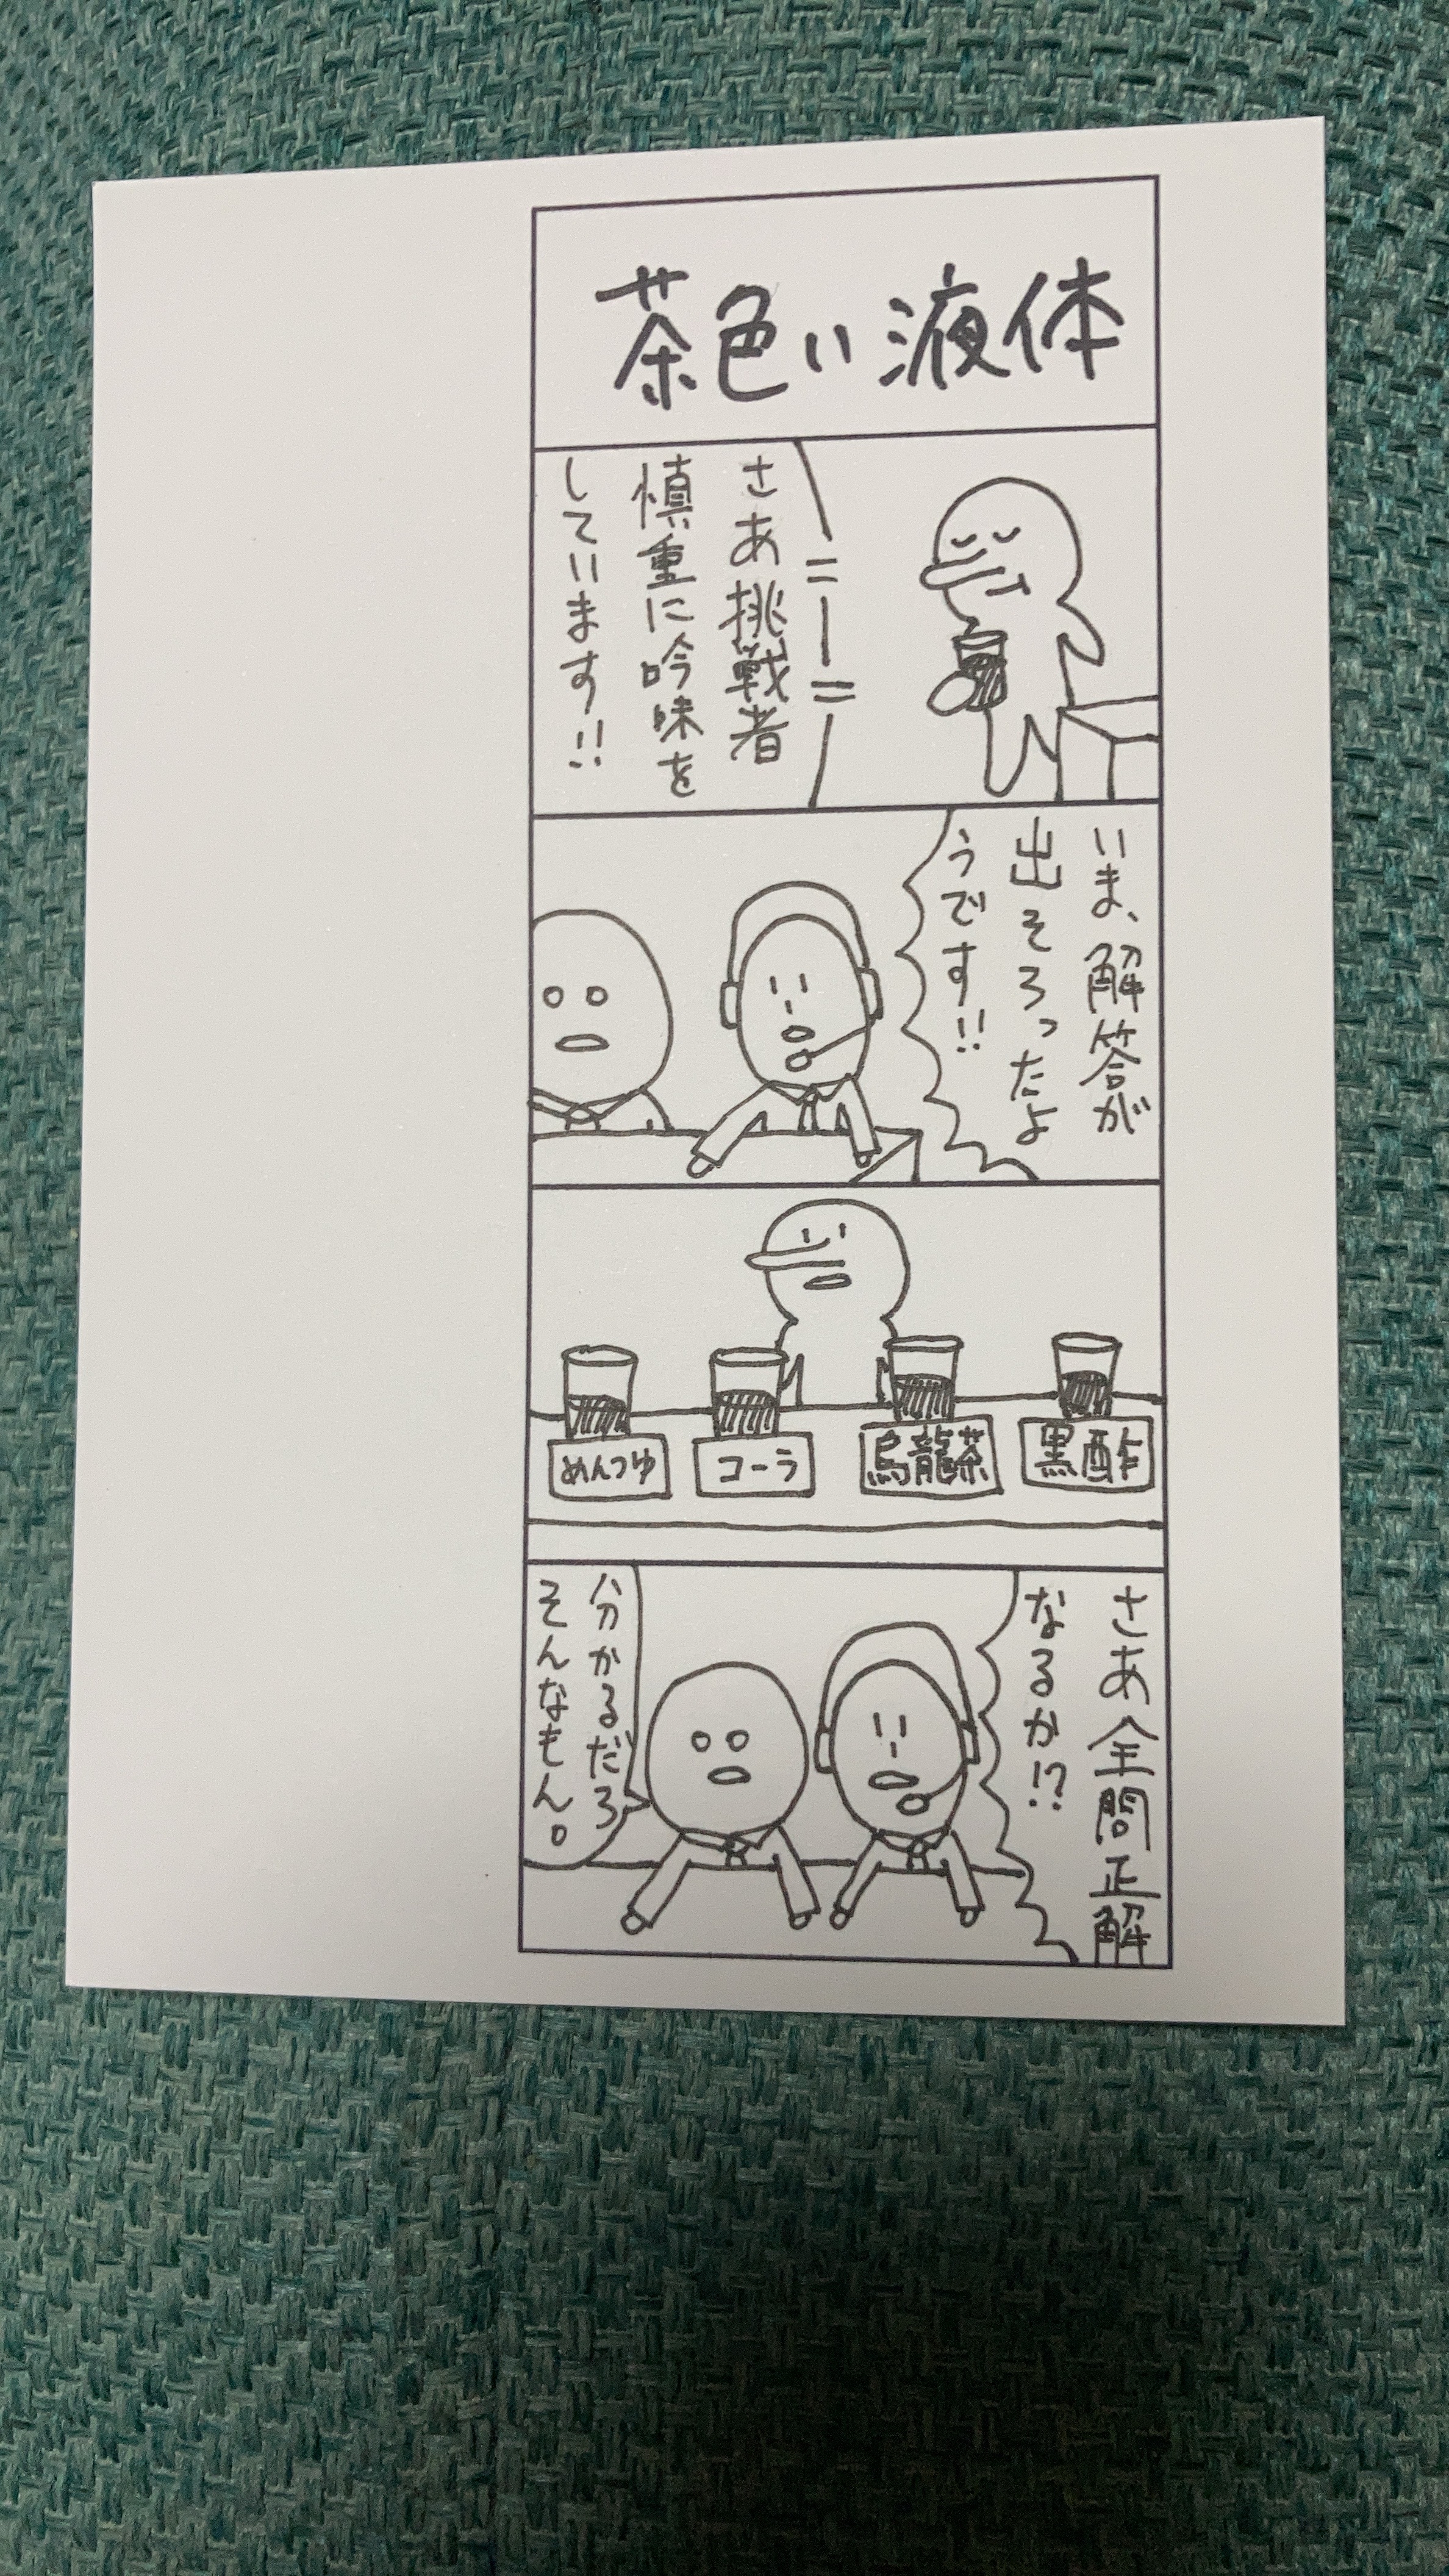 茶色い液体
さあ挑戦者
慎重に吟味を
しています!!
いま、解答が
出そろったよ
うです!!
めんつゆ
コーラ
烏龍茶
黒酢
さあ全問正解
なるか!?
分かるだろ
そんなもん。